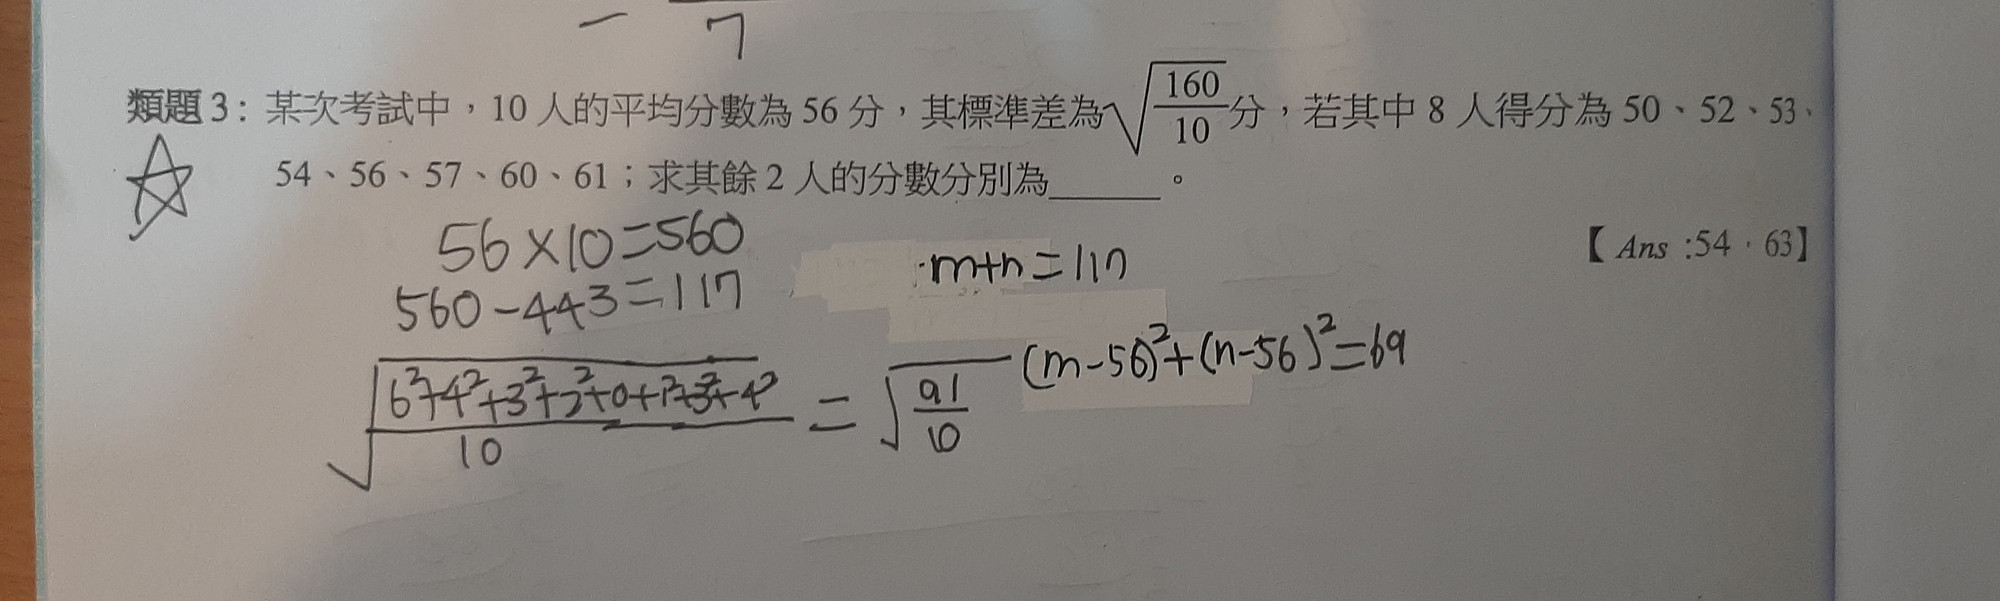 - 7
類題 3：某次考試中，10 人的平均分數為 56 分，其標準差為√(160/10)分，若其中 8 人得分為 50、52、53、
54、56、57、60、61；求其餘 2 人的分數分別為______。
【Ans：54，63】
56×10=560
560-443=117
m+n=117
√((6²+4²+3²+2²+0+1²+3²+4²)/10) = √(91/10)
(m-56)²+(n-56)²=69